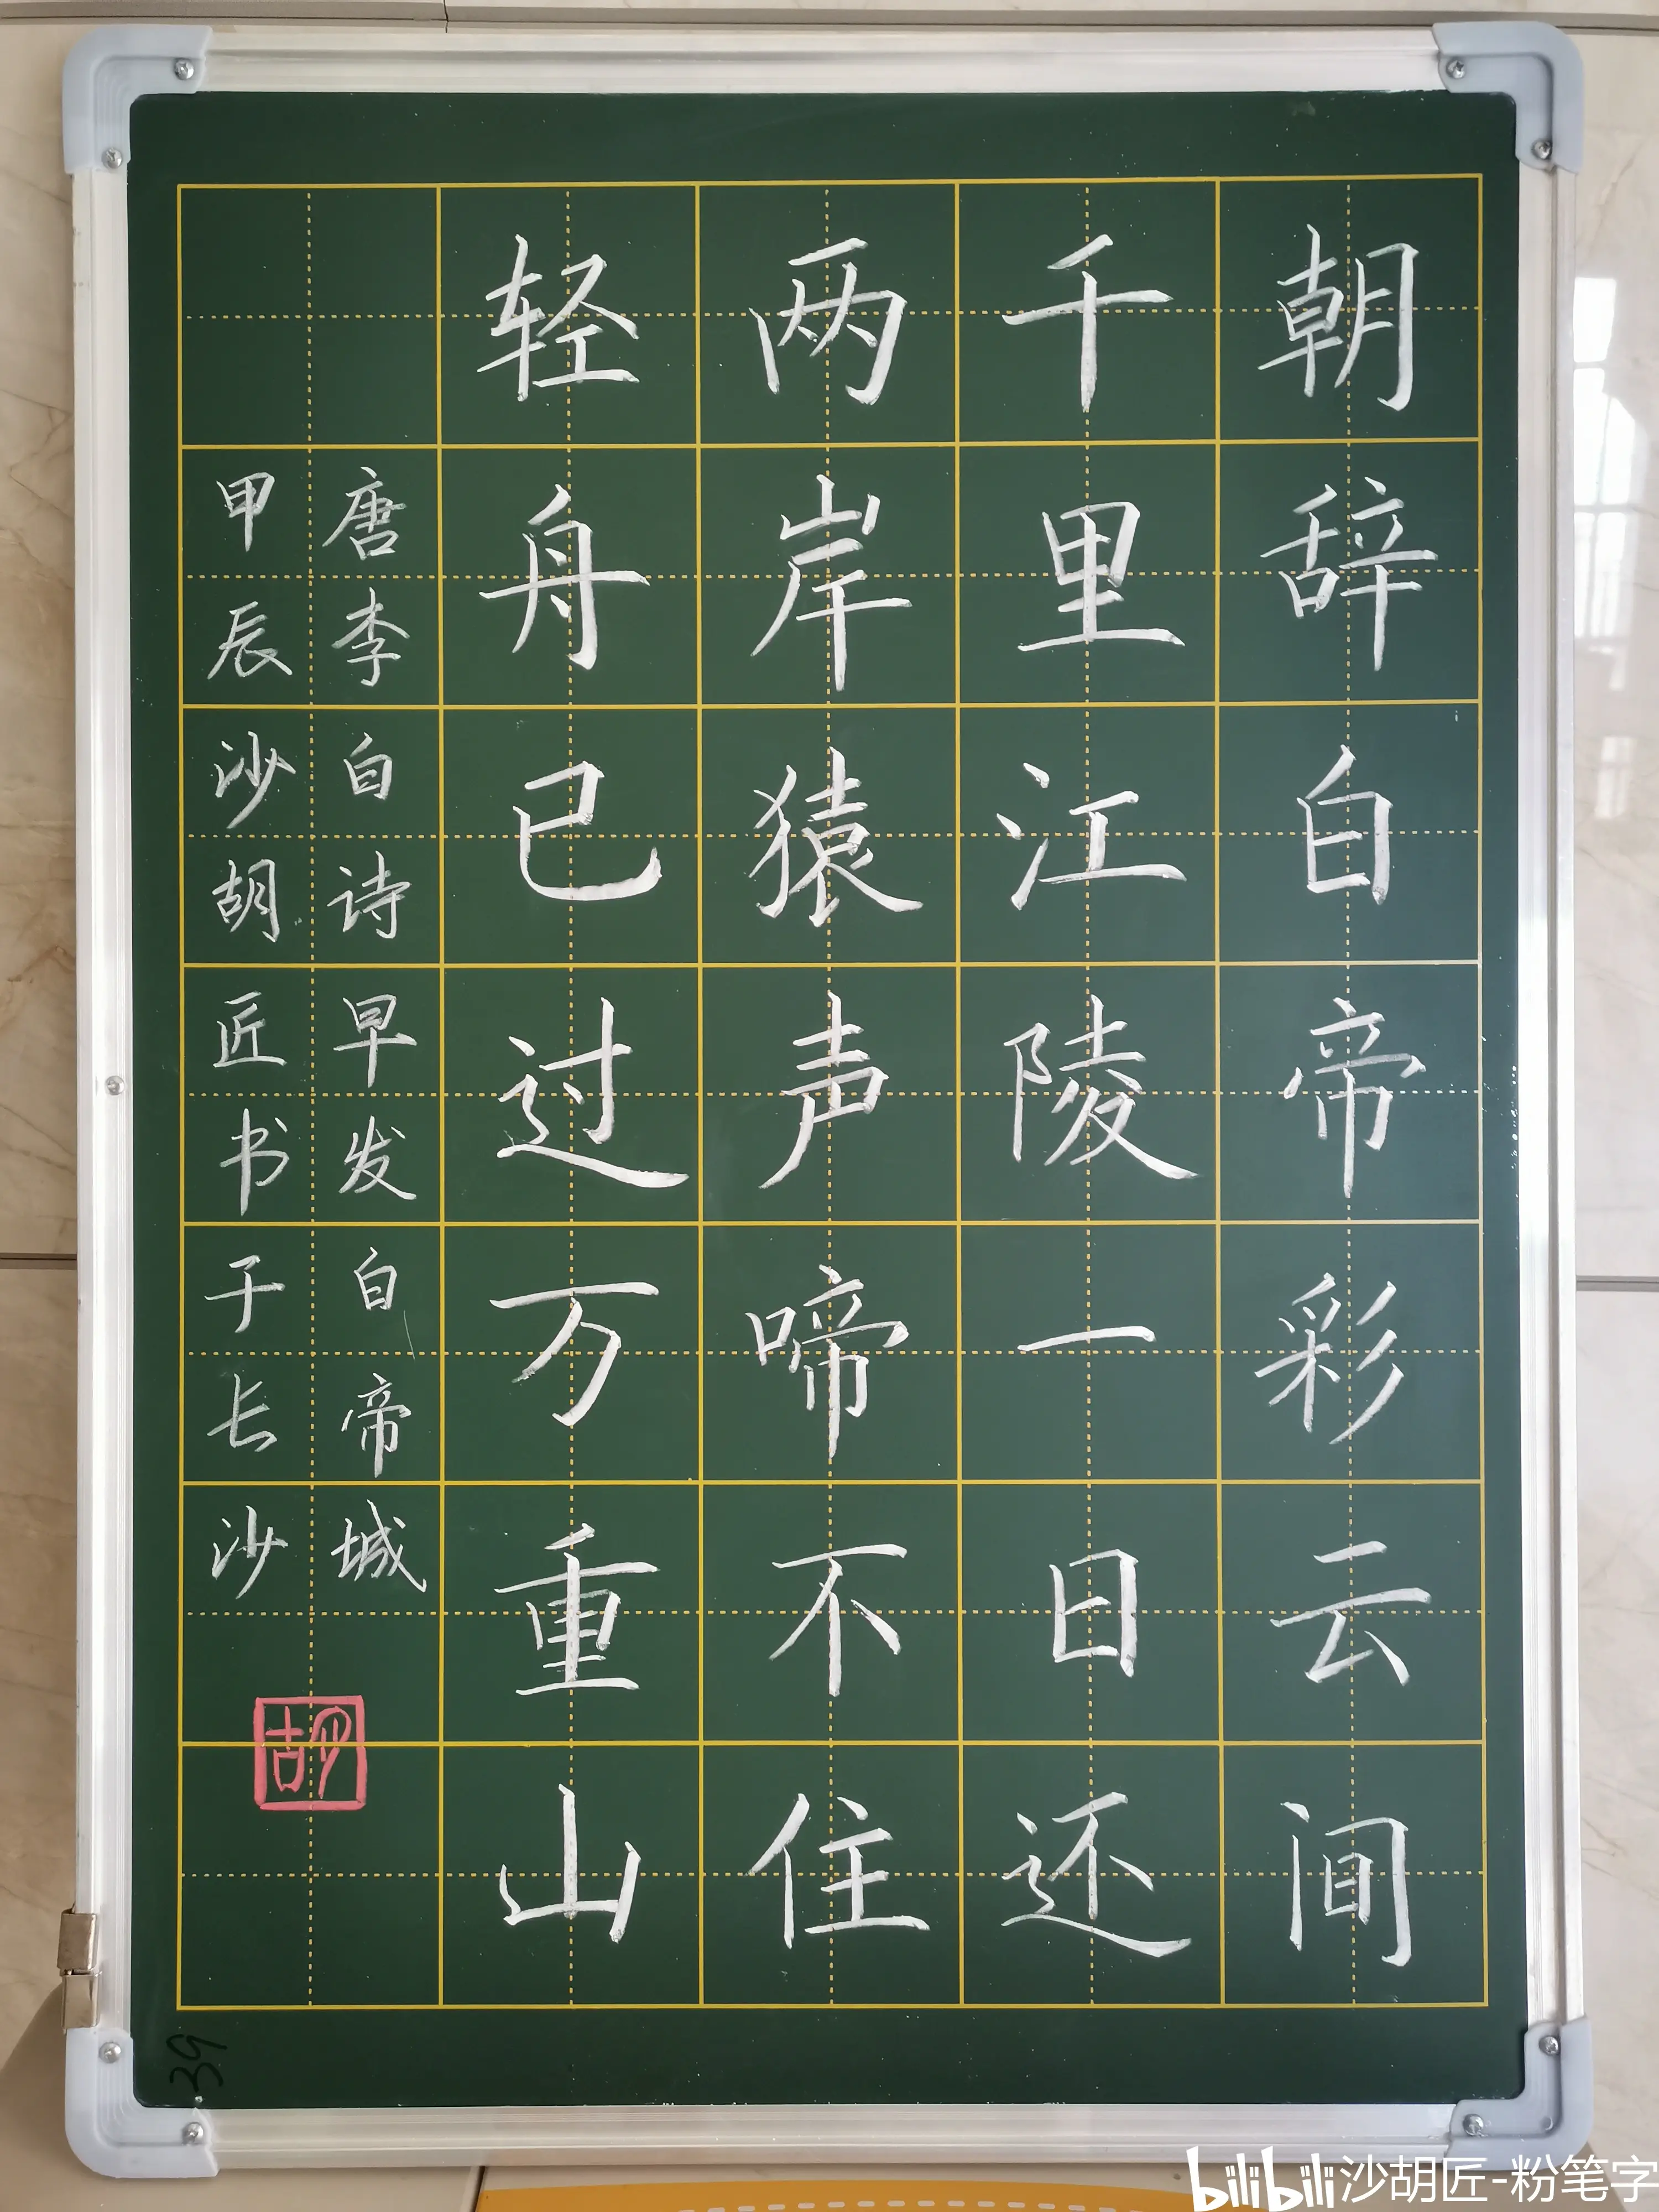 朝辞白帝彩云间
千里江陵一日还
两岸猿声啼不住
轻舟已过万重山
唐李白诗早发白帝城
甲辰沙胡匠书于长沙
胡
39
bilibili 沙胡匠-粉笔字